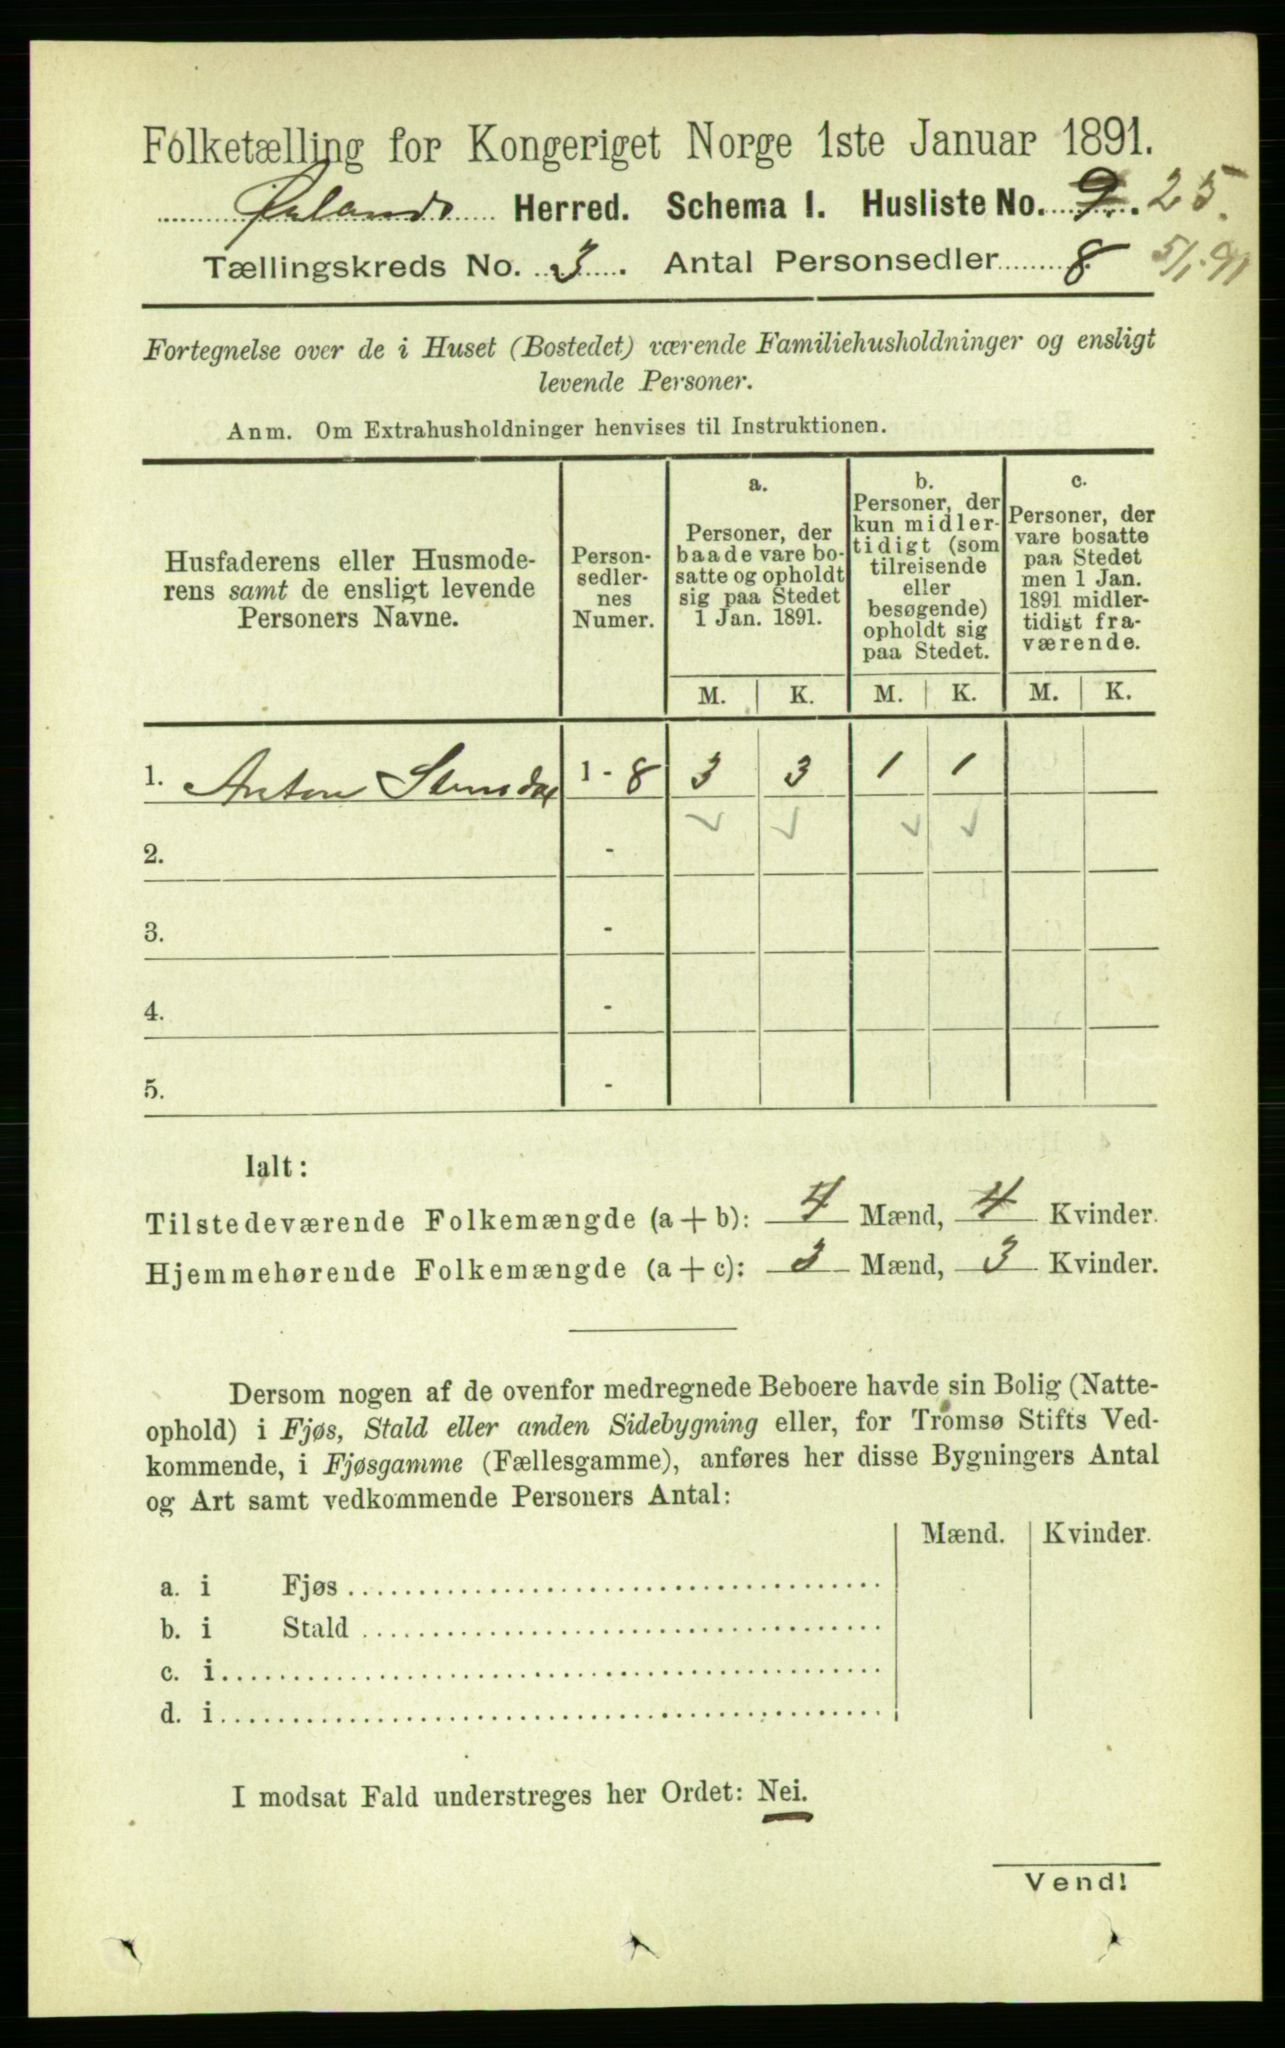 Folketælling for Kongeriget Norge 1ste Januar 1891.
Ørlands Herred. Schema 1. Husliste No. 9. 25.
Tællingskreds No. 3. Antal Personsedler 8 5/1 91
Fortegnelse over de i Huset (Bostedet) værende Familiehusholdninger og ensligt
levende Personer.
Anm. Om Extrahusholdninger henvises til Instruktionen.
Husfaderens eller Husmode-
rens samt de ensligt levende
Personers Navne.
Person-
sedler-
nes
Numer.
a.
Personer, der
baade vare bo-
satte og opholdt
sig paa Stedet
1 Jan. 1891.
b.
Personer, der
kun midler-
tidigt (som
tilreisende
eller
besøgende)
opholdt sig
paa Stedet.
c.
Personer, der
vare bosatte
paa Stedet
men 1 Jan.
1891 midler-
tidigt fra-
værende.
M. K. M. K. M. K.
1. Anton 1 - 8 3 3 1 1
2. -
3. -
4. -
5. -
Ialt:
Tilstedeværende Folkemængde (a + b): 4 Mænd, 4 Kvinder.
Hjemmehørende Folkemængde (a + c): 3 Mænd, 3 Kvinder.
Dersom nogen af de ovenfor medregnede Beboere havde sin Bolig (Natte-
ophold) i Fjøs, Stald eller anden Sidebygning eller, for Tromsø Stifts Ved-
kommende, i Fjøsgamme (Fællesgamme), anføres her disse Bygningers Antal
og Art samt vedkommende Personers Antal:
Mænd. Kvinder.
a. i Fjøs
b. i Stald
c. i
d. i
I modsat Fald understreges her Ordet: Nei.
Vend!